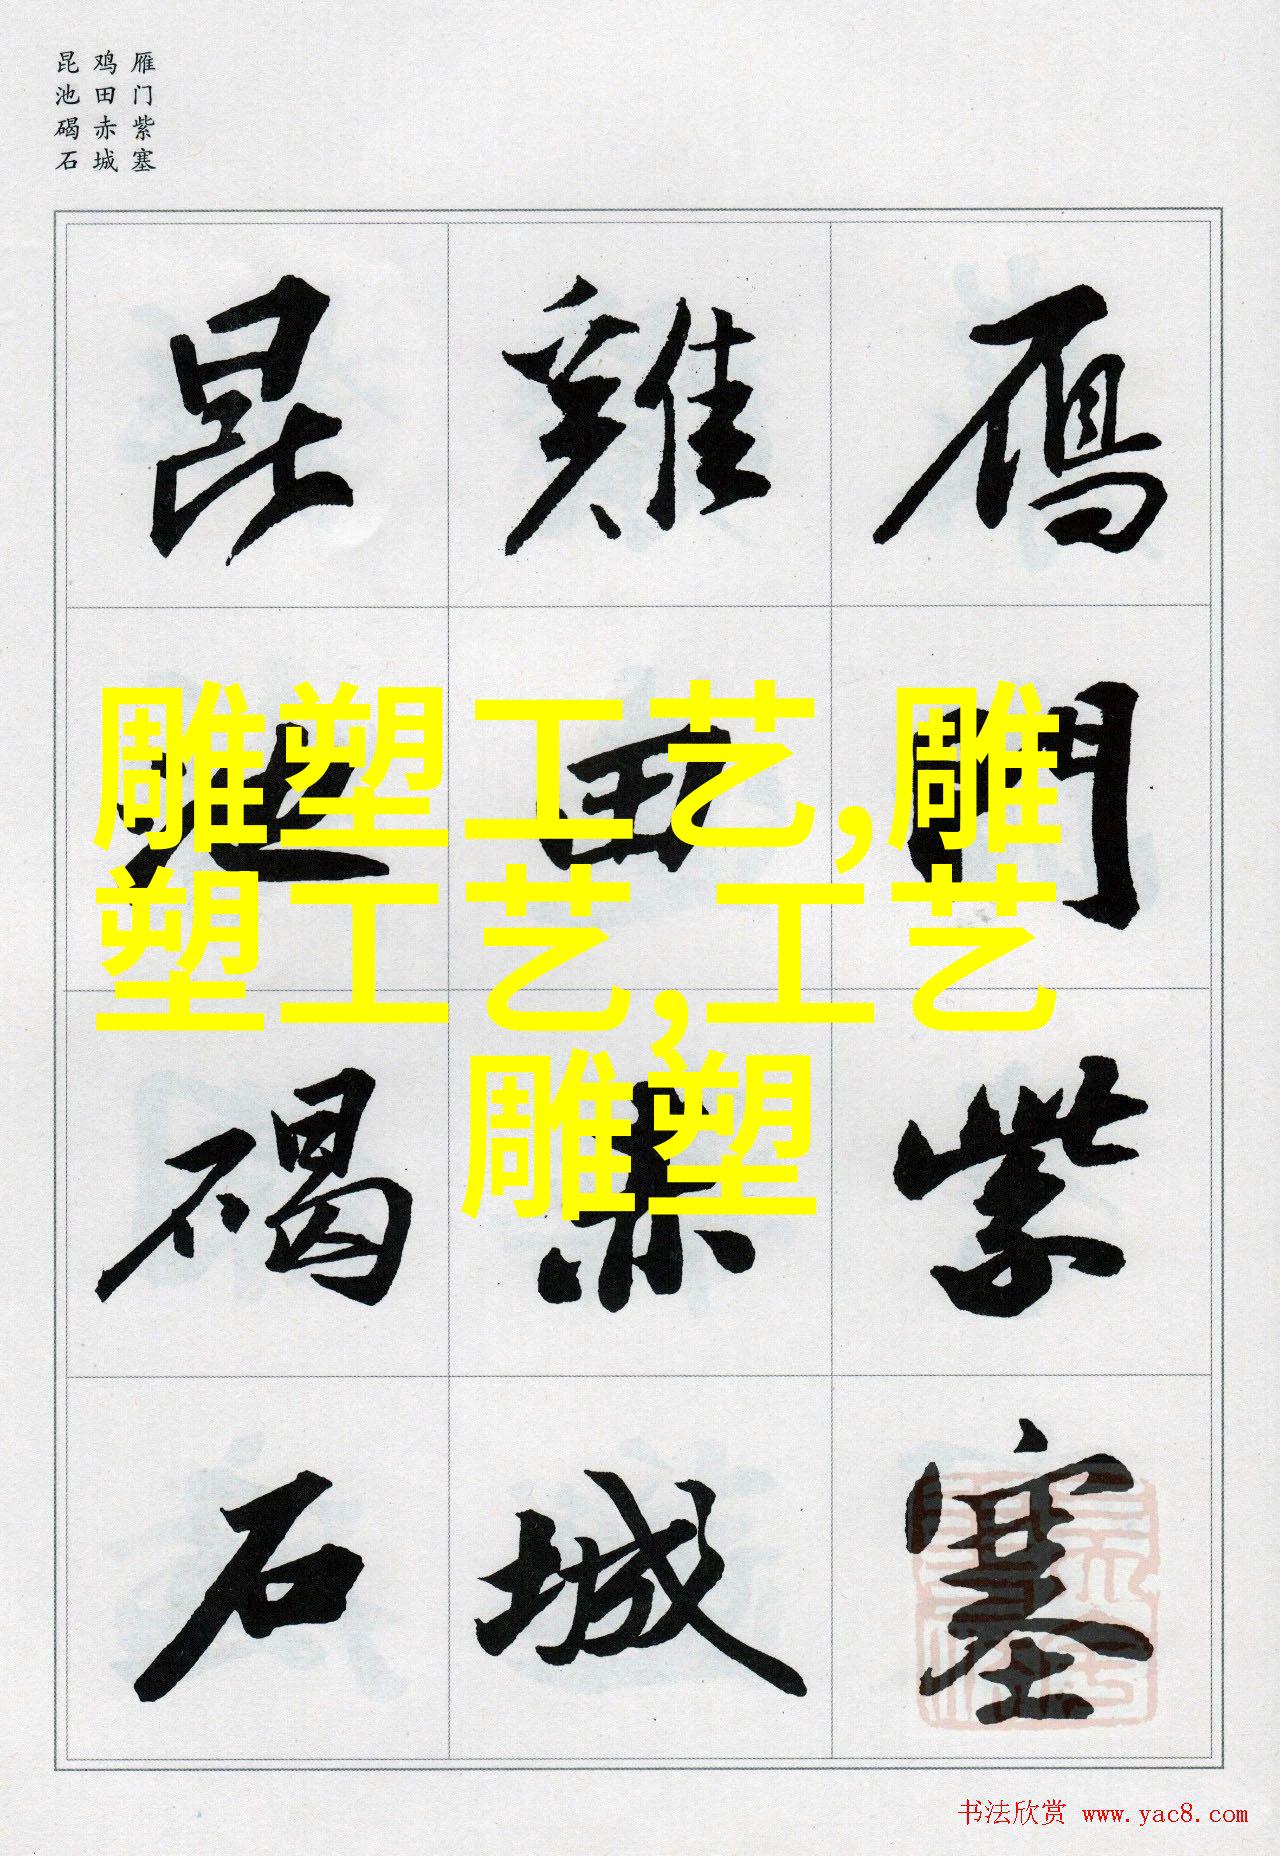 雁门紫塞
鸡田赤城
昆池碣石
鴈門紫塞
雞田赤城
昆池碣石
雕塑工艺,雕
塑工艺,工艺
雕塑
书法欣赏 www.yac8.com